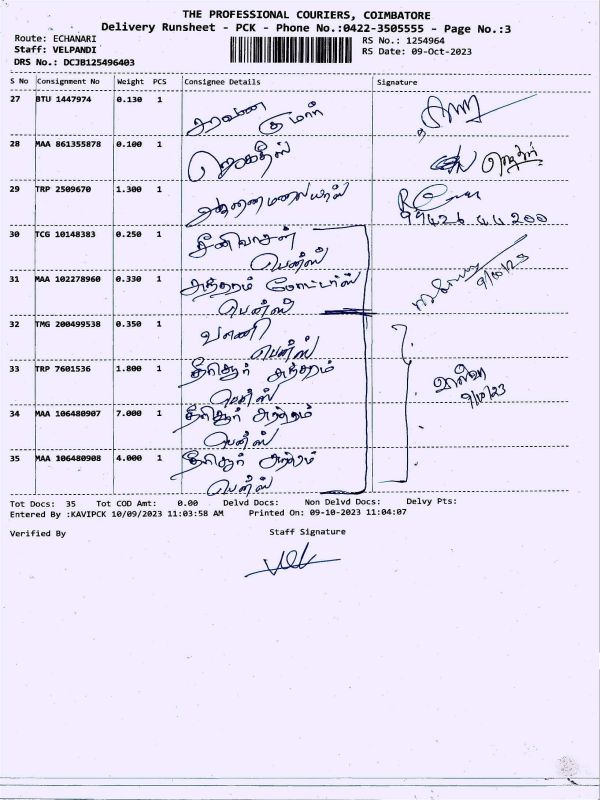 THE PROFESSIONAL COURIERS, COIMBATORE
Delivery Runsheet - PCK - Phone No.:0422-3505555 - Page No.:3
Route: ECHANARI
RS No.: 1254964
Staff: VELPANDI
RS Date: 09-Oct-2023
DRS No.: DCJB125496403
S No Consignment No Weight PCS Consignee Details Signature
27 BTU 1447974 0.130 1 சரவண
குமார்
28 MAA 861355878 0.100 1
29 TRP 2509670 1.300 1 அண்ணாமலையார்
99426 44200
30 TCG 10148383 0.250 1 சீனிவாசன்
பென்ஸ்
9/10/23
31 MAA 102278960 0.330 1 மோட்டார்ஸ்
பென்ஸ்
32 TMG 200499538 0.350 1
பென்ஸ்
33 TRP 7601536 1.800 1
பென்ஸ்
9/10/23
34 MAA 106480907 7.000 1
பென்ஸ்
35 MAA 106480908 4.000 1
பென்ஸ்
Tot Docs: 35 Tot COD Amt: 0.00 Delvd Docs: Non Delvd Docs: Delvy Pts:
Entered By :KAVIPCK 10/09/2023 11:03:58 AM Printed On: 09-10-2023 11:04:07
Verified By Staff Signature